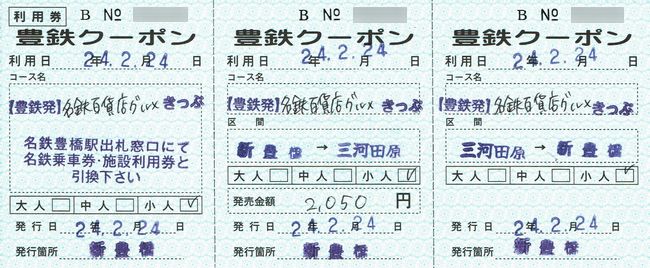 利用券
B №
豊鉄クーポン
利用日 24年2月24日
コース名
【豊鉄発】名鉄百貨店グルメきっぷ
名鉄豊橋駅出札窓口にて
名鉄乗車券・施設利用券と
引換下さい
大人 中人 小人 ✓
発行日 24年2月24日
発行箇所 新豊橋
B №
豊鉄クーポン
利用日 24年2月24日
コース名
【豊鉄発】名鉄百貨店グルメきっぷ
区間
新豊橋 → 三河田原
大人 中人 小人 ✓
発売金額 2,050 円
発行日 24年2月24日
発行箇所 新豊橋
B №
豊鉄クーポン
利用日 24年2月24日
コース名
【豊鉄発】名鉄百貨店グルメきっぷ
区間
三河田原 → 新豊橋
大人 中人 小人 ✓
発行日 24年2月24日
発行箇所 新豊橋